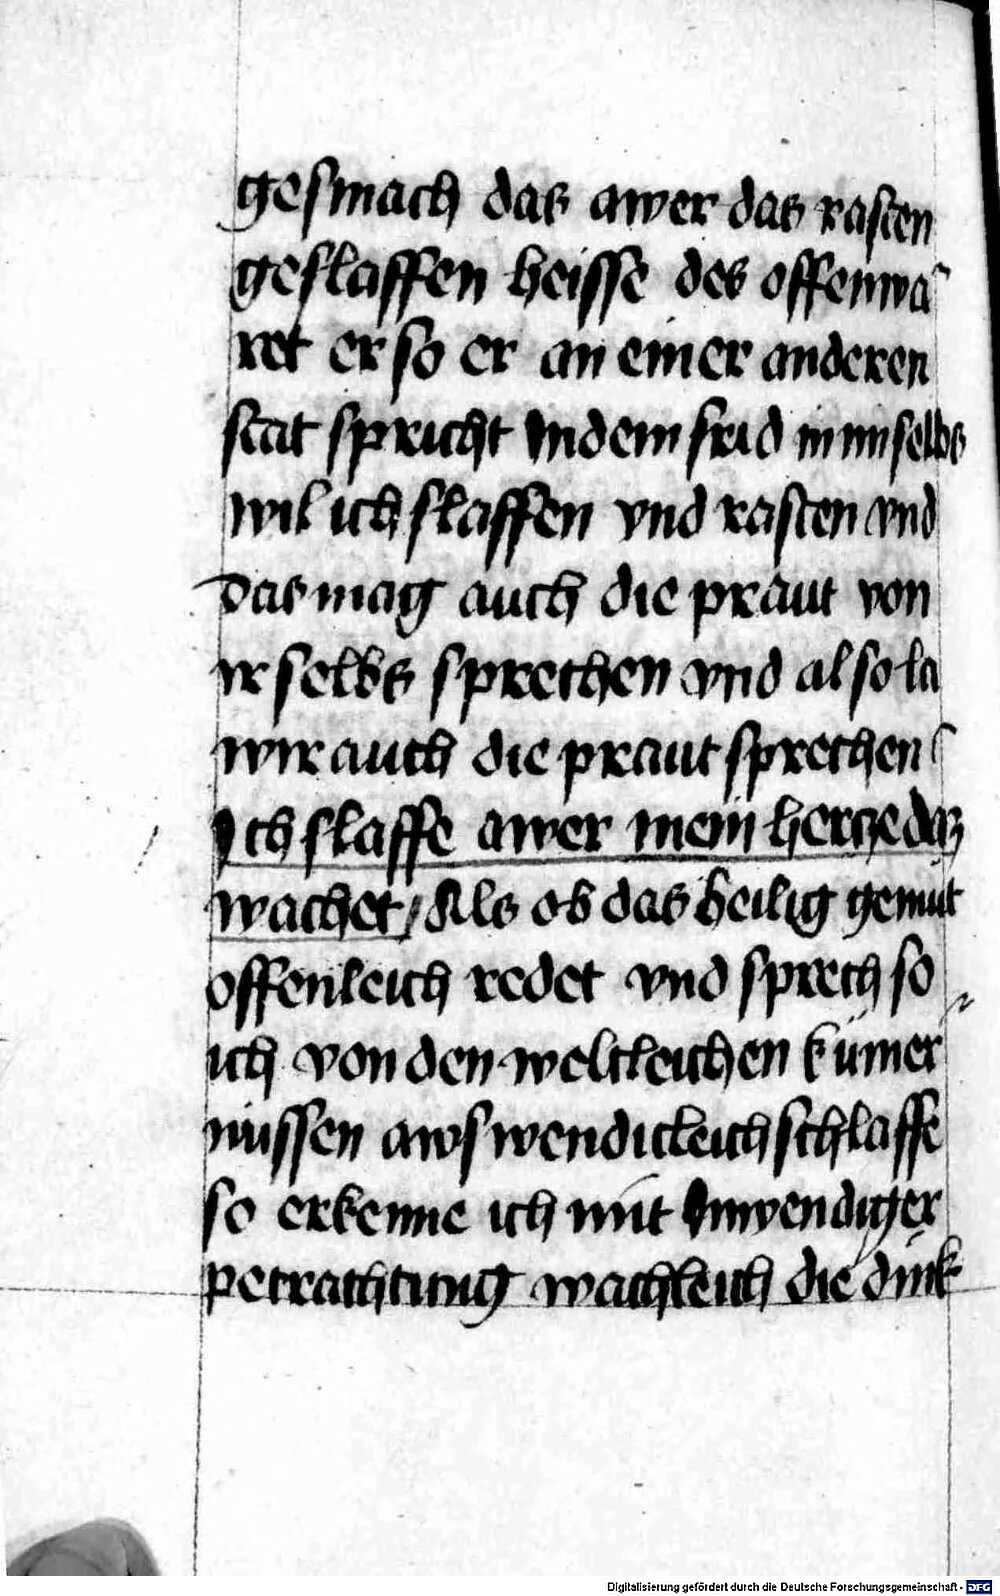 gesmach das awer das rasten
geslaffen heisse des offenwa
ret er so er an einer anderen
stat spricht In dem frid in im selbs
wil ich slaffen vnd rasten vnd
das mag auch die praut von
ir selbs sprechen vnd also la
wir auch die praut sprechen
Ich slaffe awer mein hercze daz
wachet / Als ob das heilig gemüt
offenleich redet vnd sprech so
ich von den weltleichen kümer
nüssen awswendicleich schlaffe
so erkenne ich mit Inwendiger
petrachtung wachleich die dink
Digitalisierung gefördert durch die Deutsche Forschungsgemeinschaft - DFG